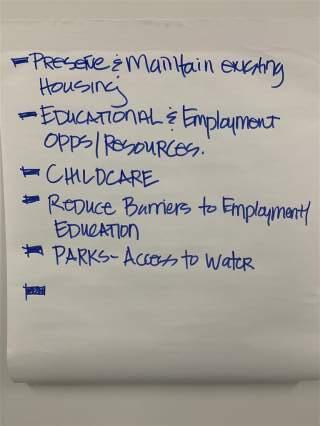 - Preserve & Maintain existing
Housing
- Educational & Employment
Opps/Resources.
- Childcare
- Reduce Barriers to Employment/
Education
- Parks - Access to Water
-